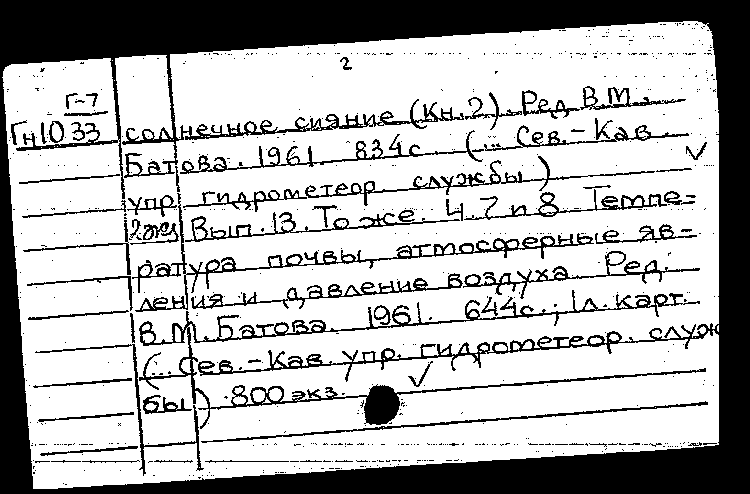 2
Г-7
Гн1033 солнечное сияние (Кн.2). Ред. В.М.
Батова. 1961. 834с. (... Сев.-Кав.
упр. гидрометеор. службы)
2экз Вып. 13. То же. Ч. 7 и 8. Темпе-
ратура почвы, атмосферные яв-
ления и давление воздуха. Ред.
В.М. Батова. 1961. 644с.; 1л. карт.
(... Сев.-Кав. упр. гидрометеор. служ
бы) 800 экз.